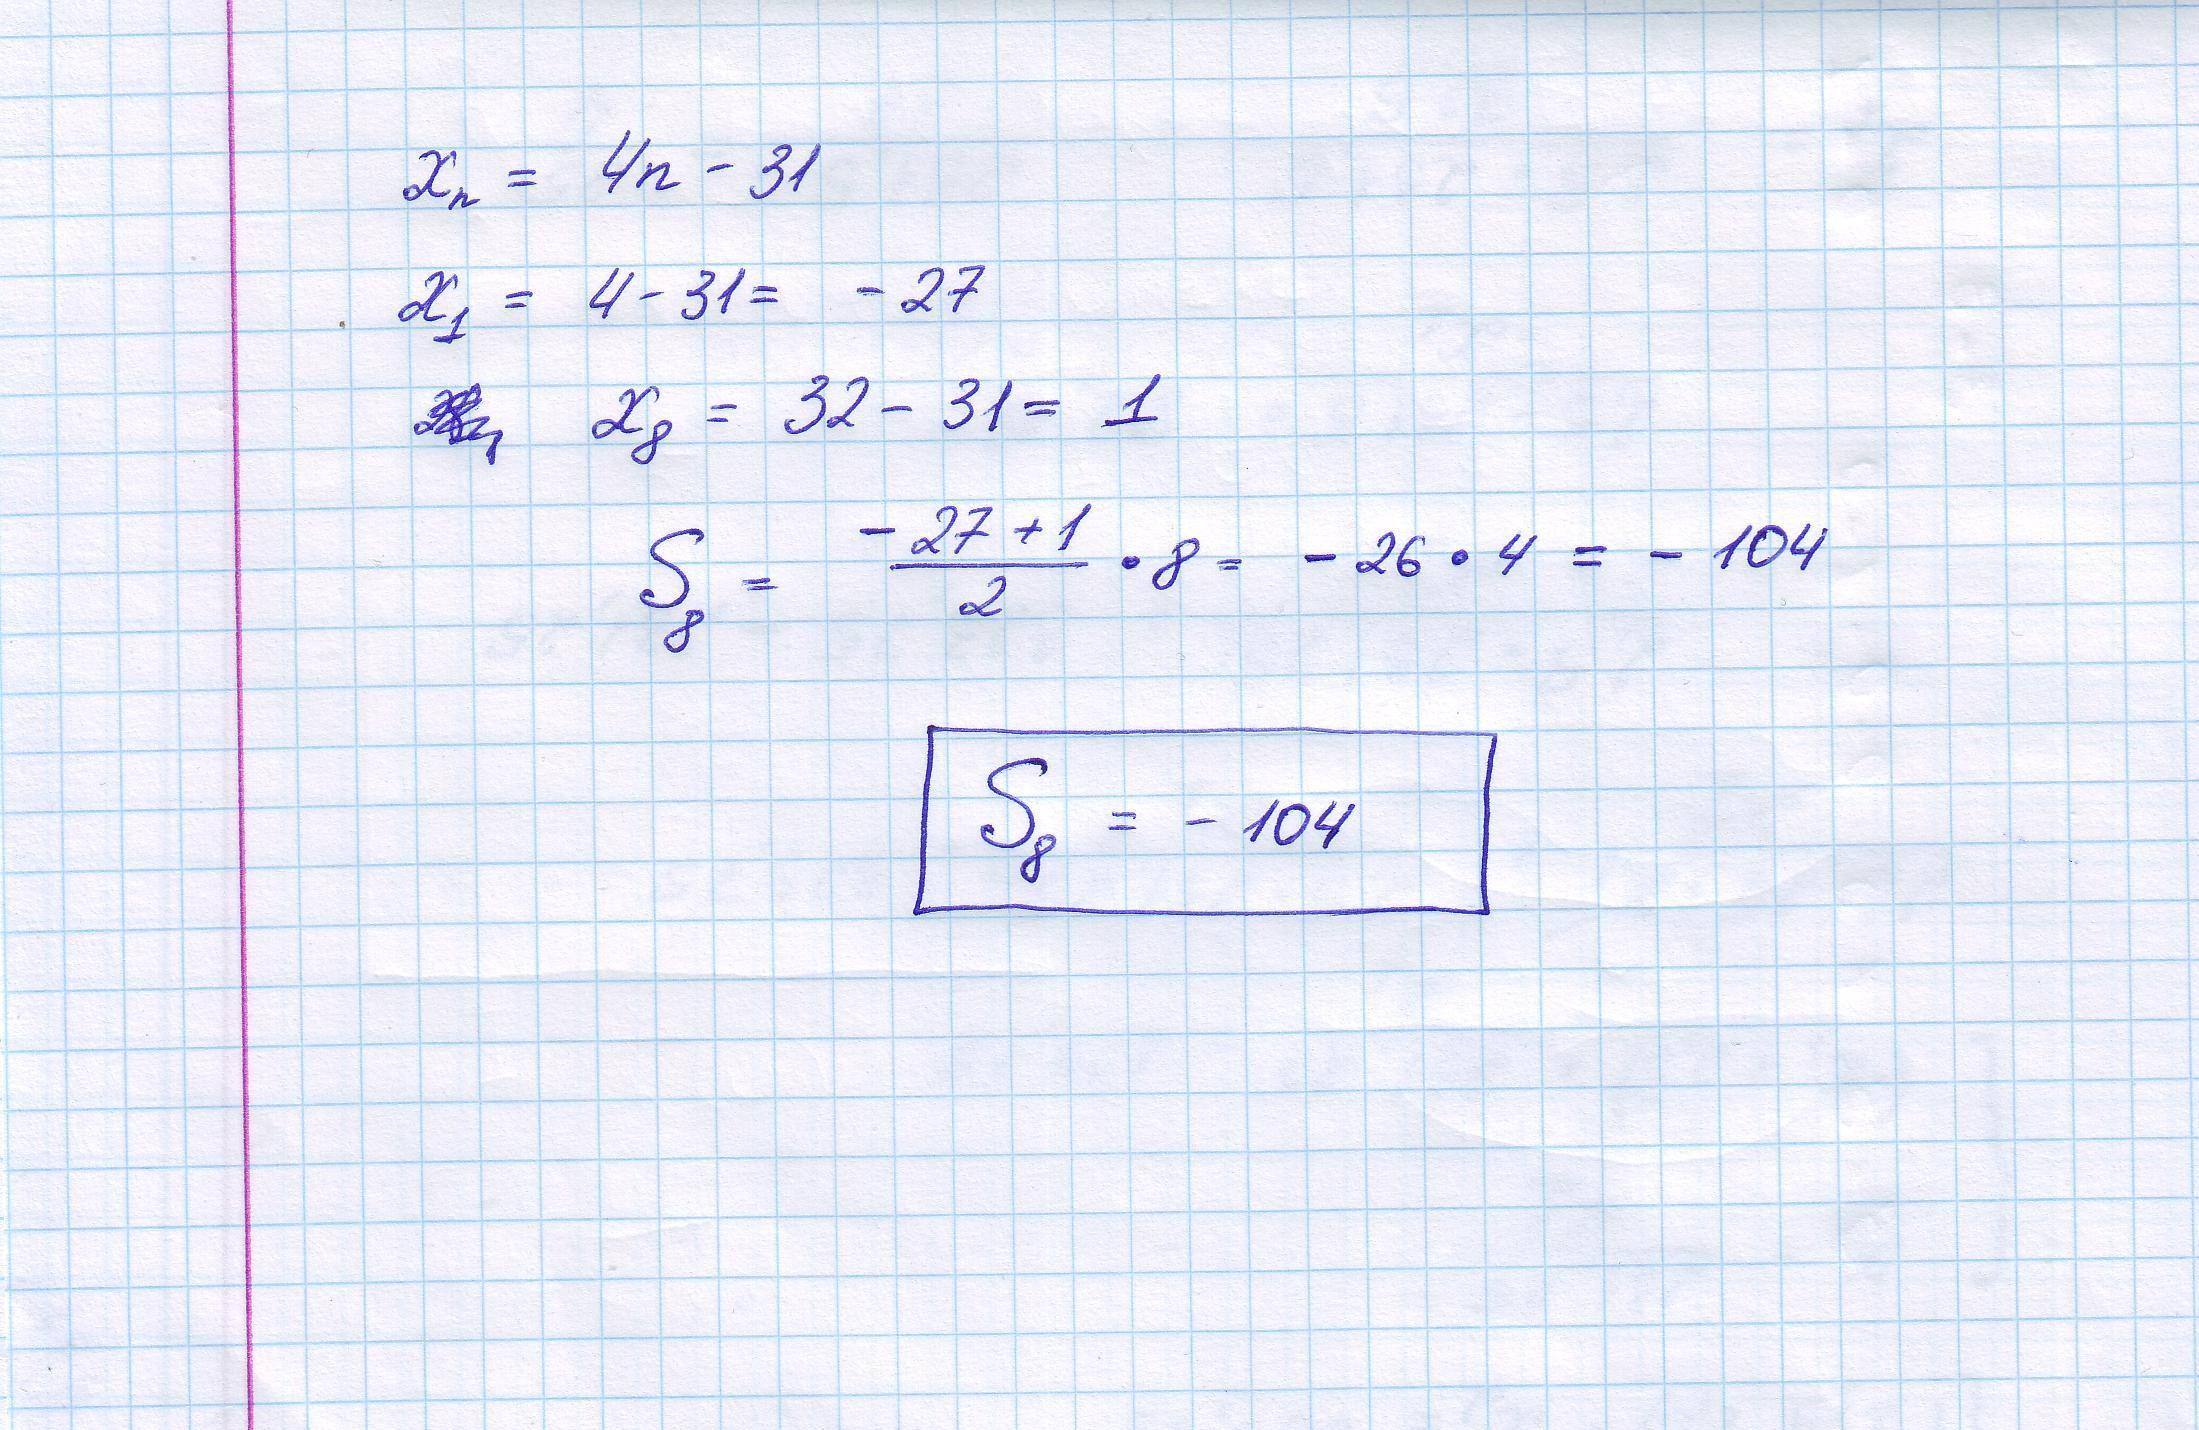 xₙ = 4n - 31
x₁ = 4 - 31 = - 27
x₈ = 32 - 31 = 1
S₈ = (- 27 + 1)/2 • 8 = - 26 • 4 = - 104
S₈ = - 104